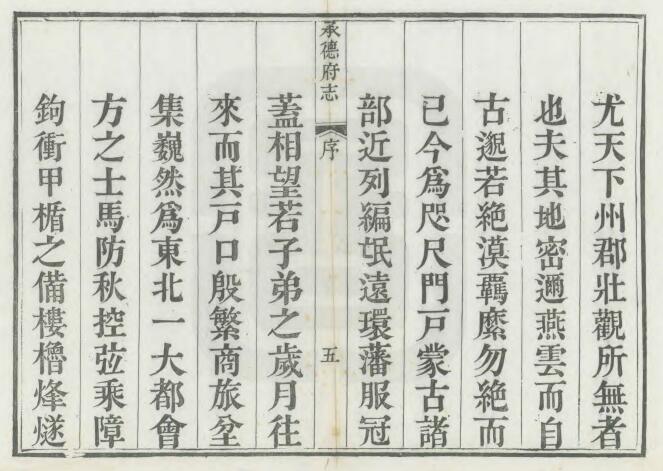 尤天下州郡壯觀所無者
也夫其地密邇燕雲而自
古邈若絶漠羈縻勿絶而
已今爲咫尺門戸蒙古諸
部近列編氓遠環藩服冠
承德府志
序
五
蓋相望若子弟之歲月往
來而其戸口殷繁商旅坌
集巍然爲東北一大都會
方之士馬防秋控弦乘障
鉤衝甲楯之備樓櫓烽燧